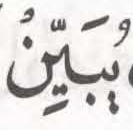 يُبَيِّنْ